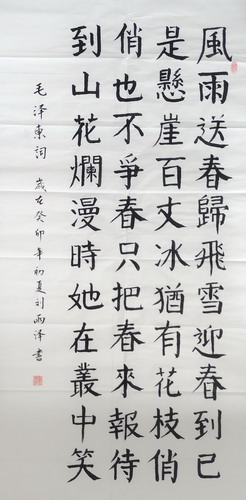 風雨送春歸飛雪迎春到已
是懸崖百丈冰猶有花枝俏
俏也不爭春只把春來報待
到山花爛漫時她在叢中笑
毛泽東詞 歲在癸卯年初夏刘雨泽書